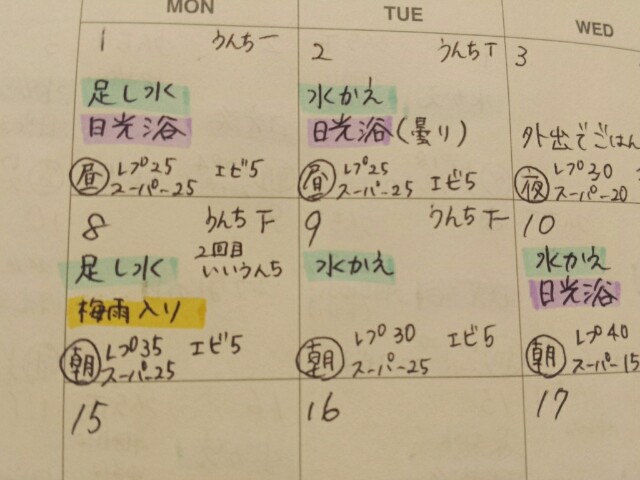 MON
TUE
WED
1 うんち一
足し水
日光浴
昼 レプ25 エビ5
スーパー25
2 うんちT
水かえ
日光浴(曇り)
昼 レプ25
スーパー25 エビ5
3
外出でごはん
夜 レプ30
スーパー20
8 うんち下
足し水 2回目
いいうんち
梅雨入り
朝 レプ35 エビ5
スーパー25
9 うんち下
水かえ
朝 レプ30 エビ5
スーパー25
10
水かえ
日光浴
朝 レプ40
スーパー15
15
16
17